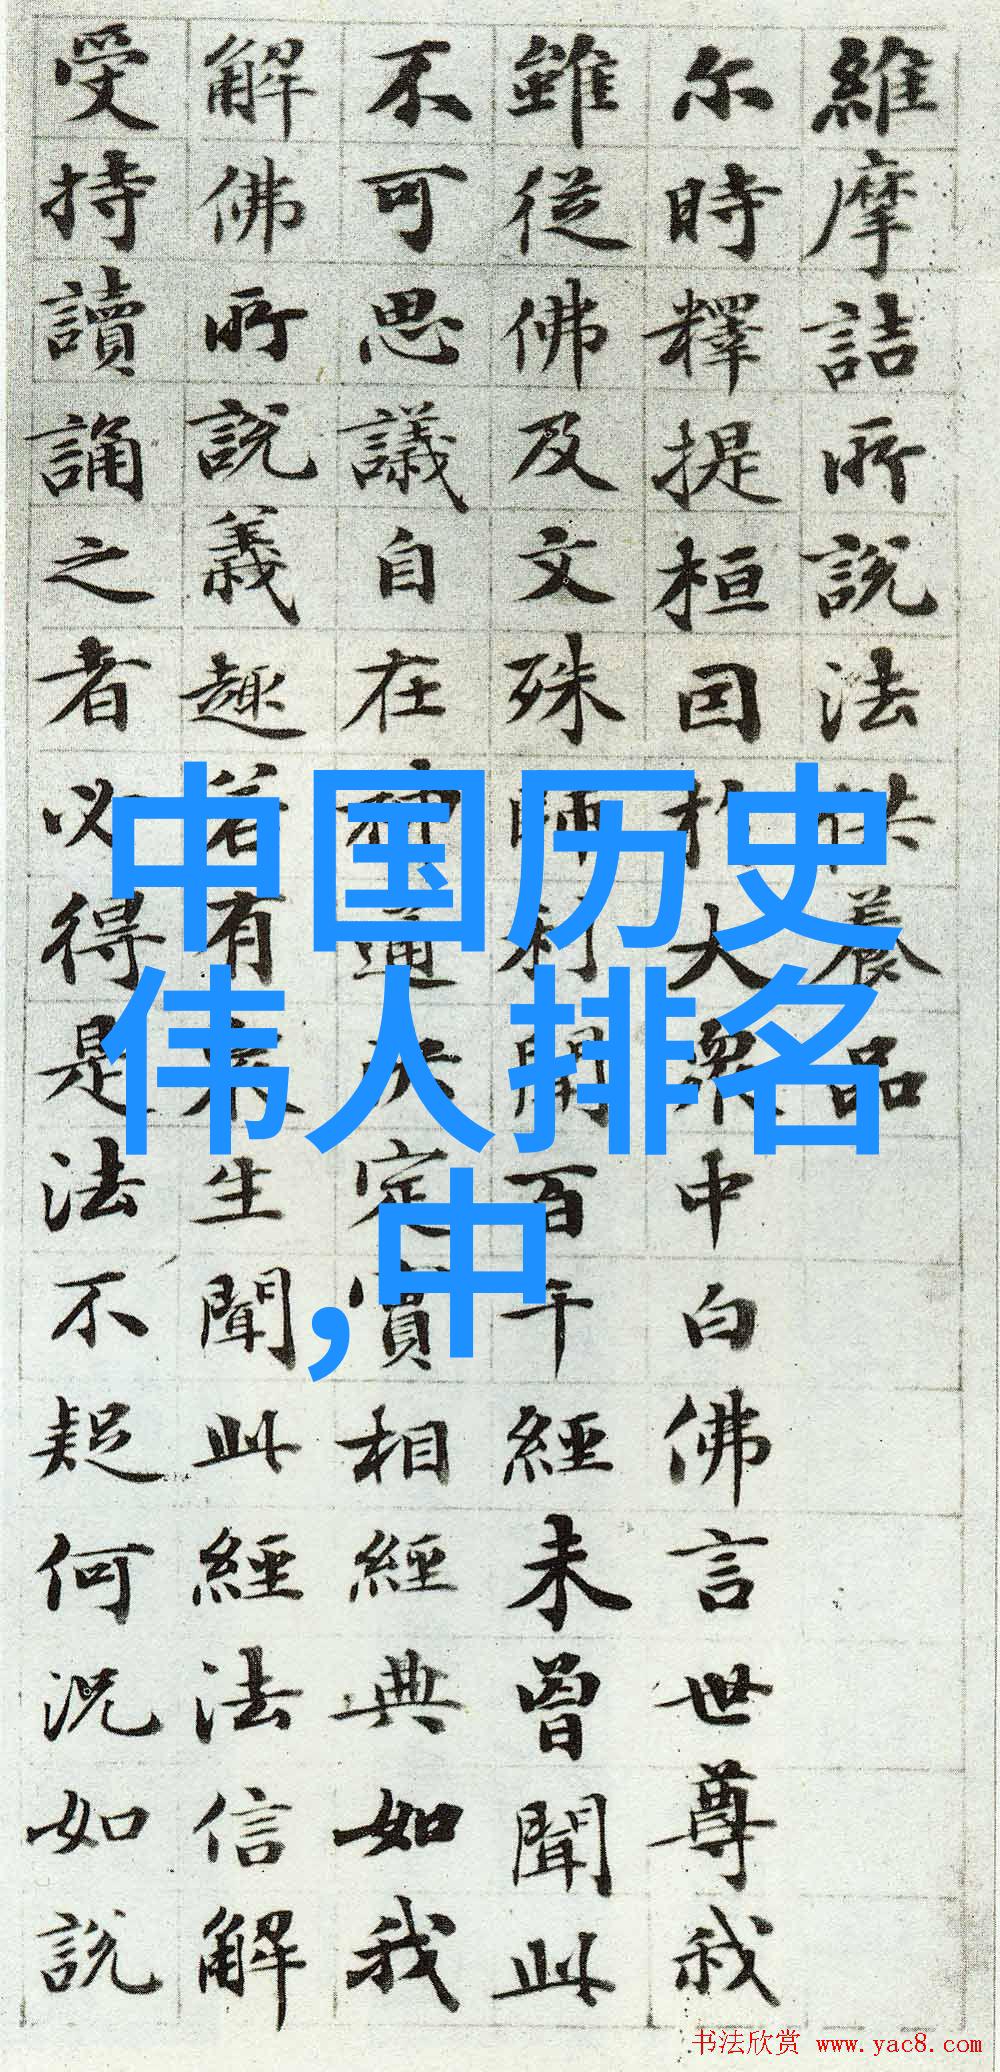 維摩詰所說法供養品
尓時釋提桓因於大眾中白佛言世尊我
雖從佛及文殊師利聞百千經未曾聞此
不可思議自在神通決定實相經典如我
解佛所說義趣若有眾生聞此經法信解
受持讀誦之者必得是法不疑何況如說
中国历史
伟人排名
,中
书法欣赏 www.yac8.com